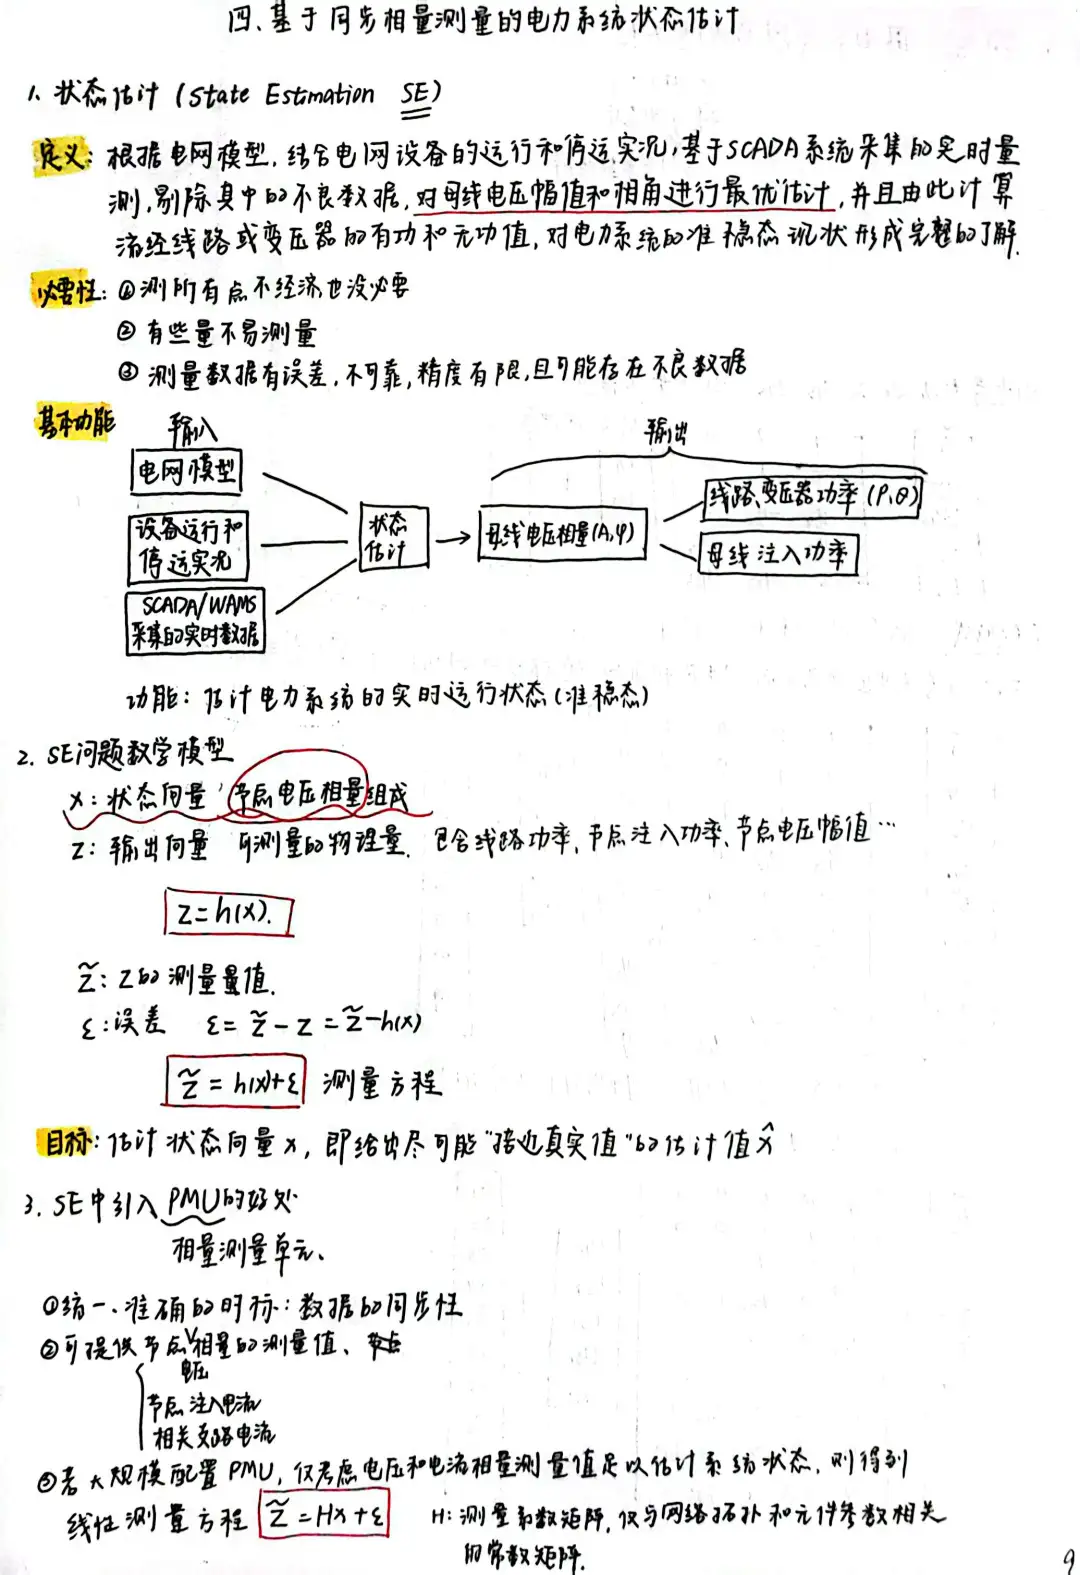 四、基于同步相量测量的电力系统状态估计
1、状态估计(State Estimation SE)
定义:根据电网模型,结合电网设备的运行和停运实况,基于SCADA系统采集的实时量
测,剔除其中的不良数据,对母线电压幅值和相角进行最优估计,并且由此计算
流经线路或变压器的有功和无功值,对电力系统的准稳态现状形成完整的了解.
必要性:①测所有点不经济也没必要
②有些量不易测量
③测量数据有误差,不可靠,精度有限,且可能存在不良数据
基本功能
输入
输出
电网模型
设备运行和
停运实况
SCADA/WAMS
采集的实时数据
状态
估计
母线电压相量(A,φ)
线路、变压器功率(P,Q)
母线注入功率
功能:估计电力系统的实时运行状态(准稳态)
2. SE问题数学模型
x:状态向量 节点电压相量组成
Z:输出向量 可测量的物理量. 包含线路功率、节点注入功率、节点电压幅值…
Z=h(x).
Z̃:Z的测量量值.
ε:误差 ε=Z̃-Z=Z̃-h(x)
Z̃=h(x)+ε 测量方程
目标:估计状态向量x,即给出尽可能"接近真实值"的估计值x̂
3. SE中引入PMU的好处
相量测量单元、
①统一、准确的时标:数据的同步性
②可提供节点相量的测量值、
电压
节点注入电流
相关支路电流
③若大规模配置PMU,仅考虑电压和电流相量测量值足以估计系统状态,则得到
线性测量方程 Z̃=Hx+ε H:测量系数矩阵,仅与网络拓扑和元件参数相关
的常数矩阵.
9